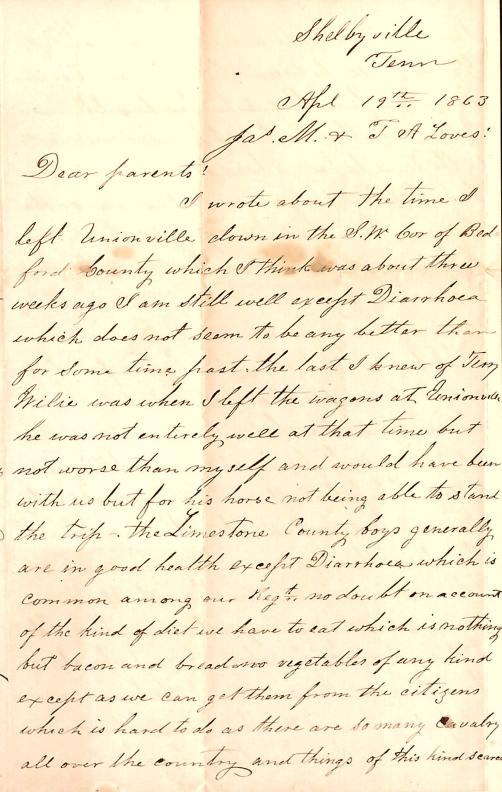 Shelbyville
Tenn
Apl 19th 1863
Jas. M. & T A Loves!
Dear parents!
I wrote about the time I
left Unionville down in the S.W Cor of Bed
ford County which I think was about three
weeks ago I am still well except Diarrhoea
which does not seem to be any better than
for some time past. the last I knew of
Wilie was when I left the wagons at Unionville
he was not entirely well at that time but
not worse than myself and would have been
with us but for his horse not being able to stand
the trip - the Limestone County boys generally
are in good health except Diarrhoea which is
common among our Regt. no doubt on account
of the kind of diet we have to eat which is nothing
but bacon and bread no vegetables of any kind
except as we can get them from the citizens
which is hard to do as there are so many cavalry
all over the country and things of this kind scarce